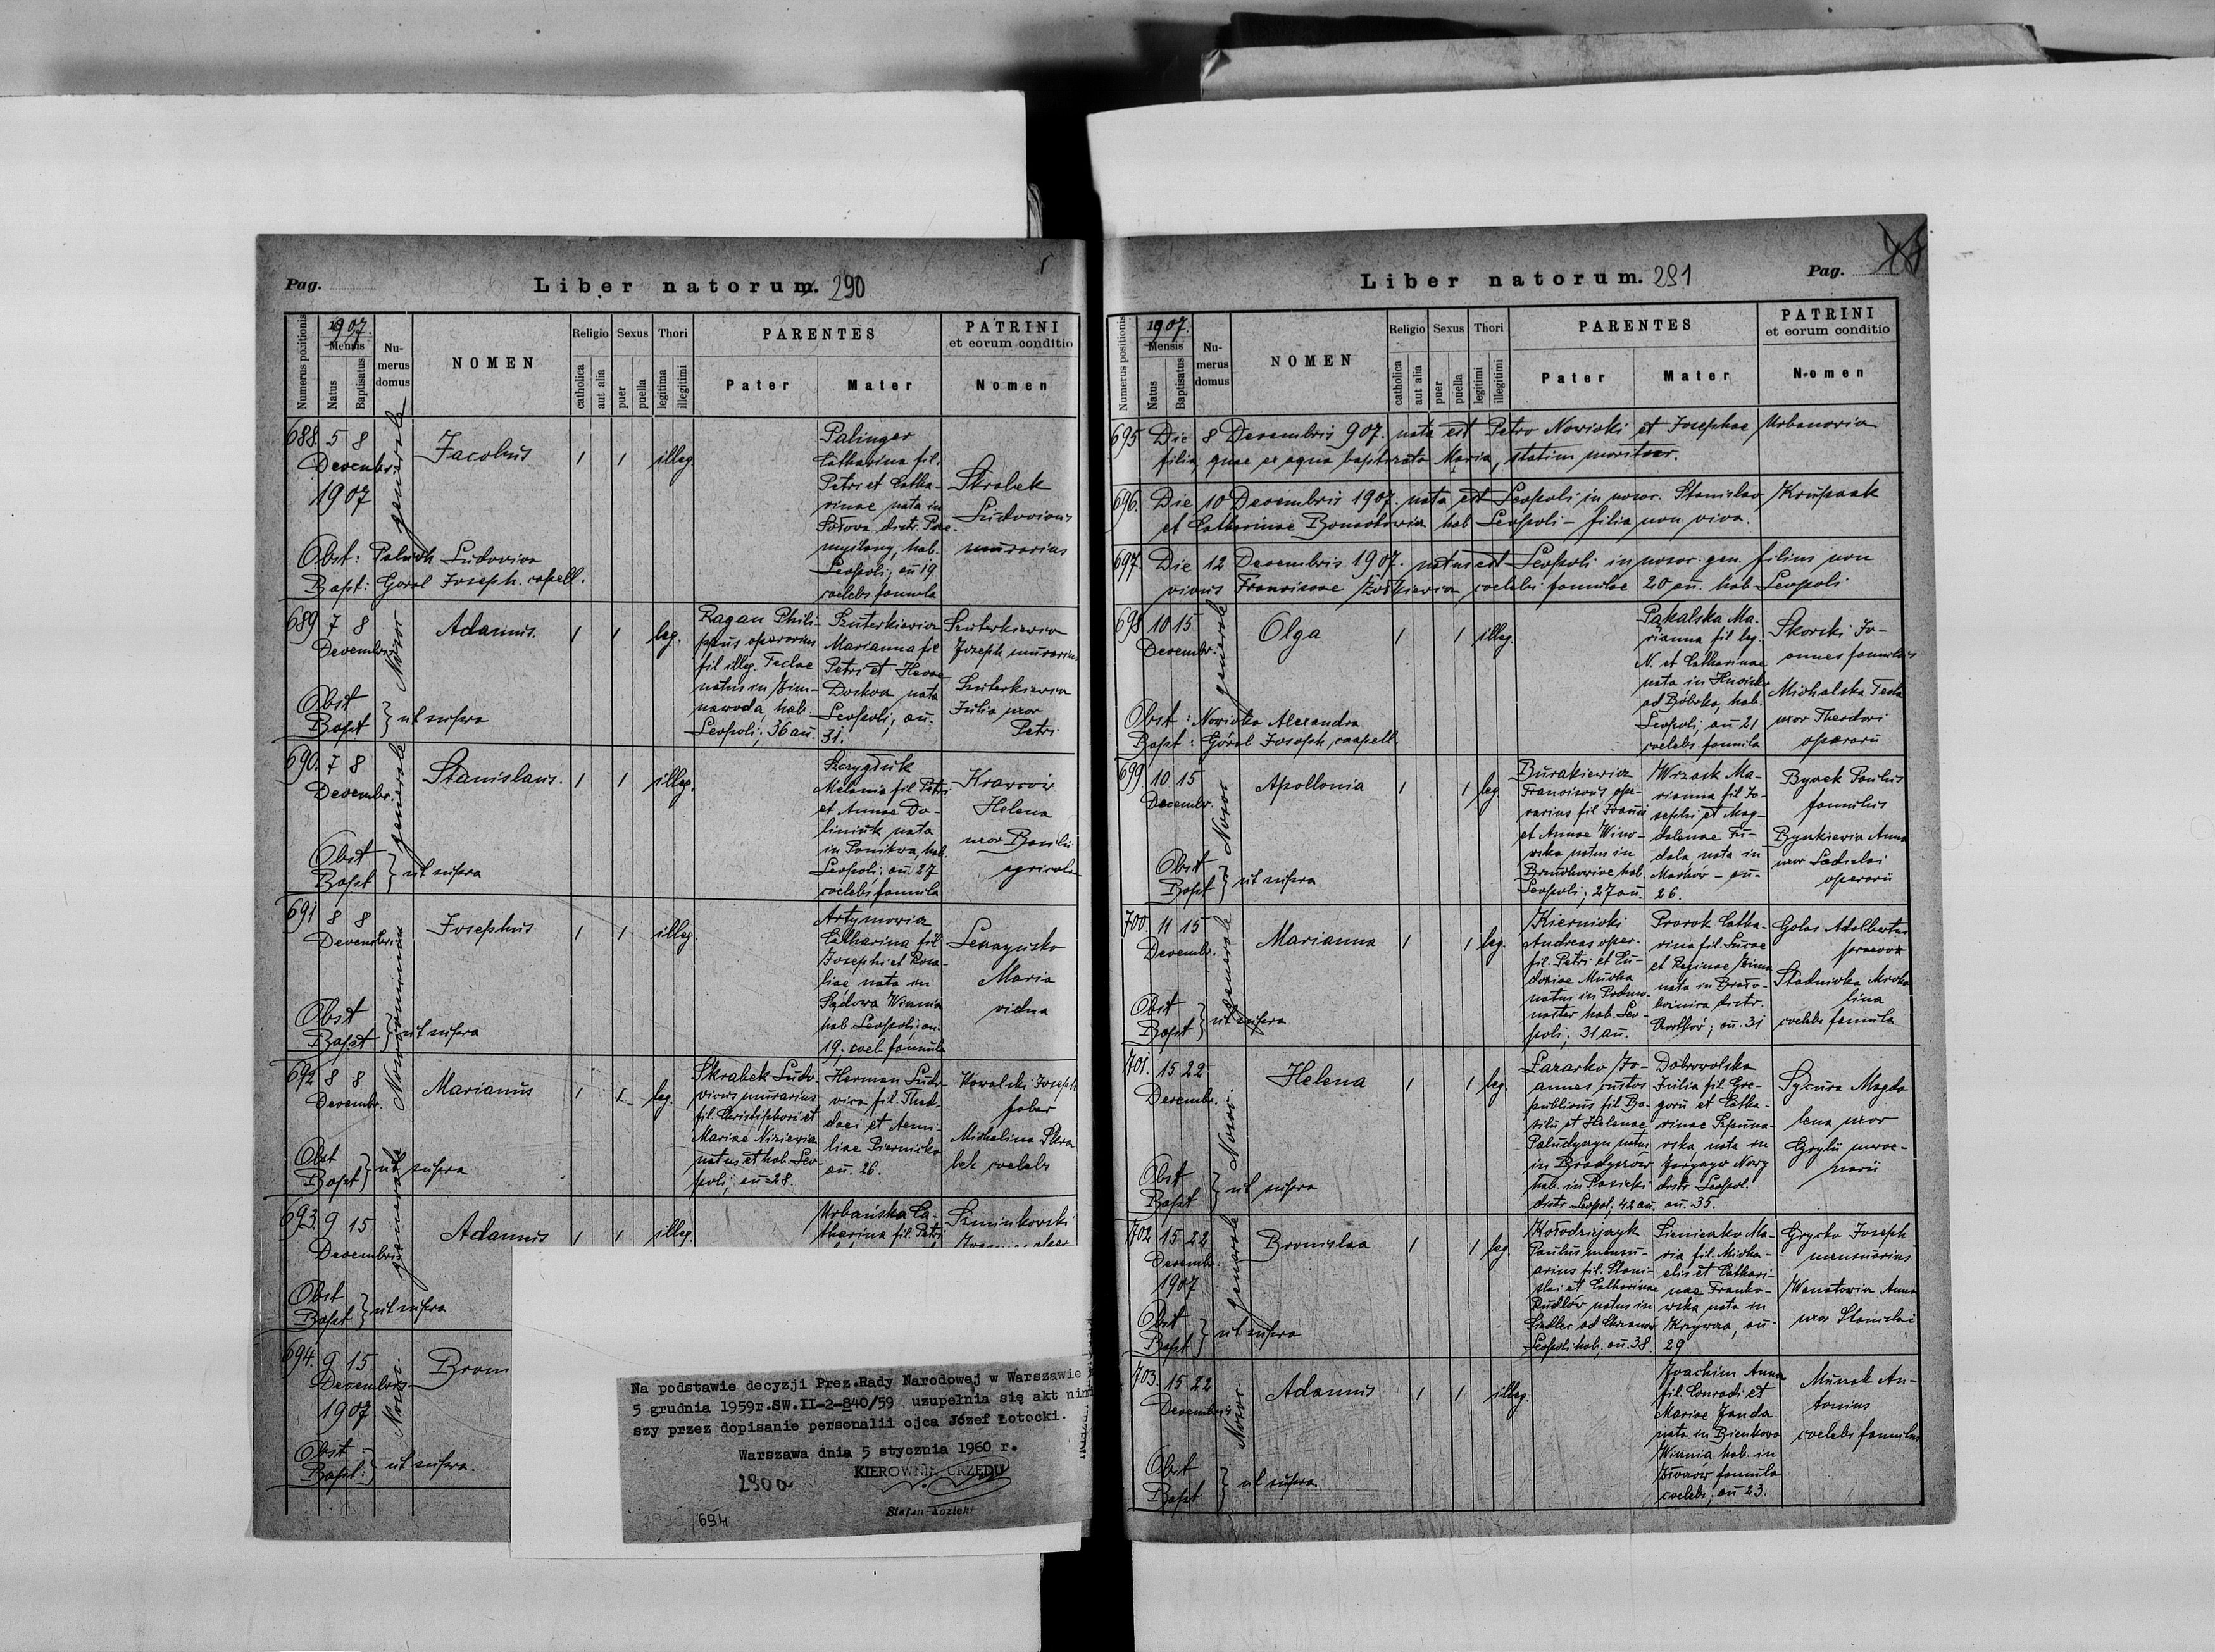 Pag.
Liber natorum. 290
Numerus positionis
1907.
Mensis
Natus
Baptisatus
Numerus domus
NOMEN
Religio
catholica
aut alia
Sexus
puer
puella
Thori
legitima
illegitimi
PARENTES
Pater
Mater
PATRINI
et eorum conditio
Nomen
688. 5 8
Decembr.
1907
generale
Jacobus
1 1 illeg.
Palinger
Catharina fil.
Petri et Catha-
rinae nata in
hab.
Leopoli, an 19
coelebs famula
Skrabek
Ludovicus
murarius
Obst: Ludovica
Bapt: Goral Joseph. capell.
689 7 8
Decembr.
Adamus.
1 1 leg.
Ragan Phili-
ppus operarius
fil illeg. Teclae
natus in Zim-
nawoda, hab.
Leopoli; 36 an.
Szuterkiewicz
Marianna fil
Petri et
nata
Leopoli, an.
31.
Szuterkiewicz
Joseph murarius
Szuterkiewicz
Julia uxor
Petri
Obst
Bapt } ut supra
690. 7 8
Decembr.
generale
Stanislaus.
1 1 illeg.
Melania fil Petri
et Annae Do-
liniuk nata
in Ponikwa, hab.
Leopoli; an 27
coelebs famula
Krawców
Helena
uxor Basilii
agricola
Obst
Bapt } ut supra
691 8 8
Decembris
Josephus
1 1 illeg.
Artymowicz
Catharina fil
Josephi et Rosa-
liae, nata in
Sądowa Wisznia
hab. Leopoli; an.
19, coel. famula
Maria
vidua
Obst
Bapt } ut supra
692 8 8
Decembr.
Marianus
1 1 leg.
Skrabek Ludo-
vicus murarius
fil. Christophori et
Mariae
natus et hab. Leo-
poli, an 28.
Herman Ludo-
vica fil. Thad-
daei et Aemi-
liae
an. 26.
Kowalski Joseph
faber
Michelina Skra
bek coelebs
Obst
Bapt } ut supra
693. 9 15
Decembris
generale
Adamus
1 1 illeg.
Urbańska Ca-
tharina fil. Petri
Szminkowski
Obst
Bapt } ut supra
694. 9 15
Decembris
1907
Nosoc.
Bron
Obst
Bapt: } ut supra.
Na podstawie decyzji Prez.Rady Narodowej w Warszawie
5 grudnia 1959r.SW.II-2-840/59 uzupełnia się akt nin
szy przez dopisanie personalii ojca Józef Łotocki.
Warszawa dnia 5 stycznia 1960 r.
290a
KIEROWNIK URZĘDU
Stefan Kozicki
694
Liber natorum. 291
Pag.
Numerus positionis
1907.
Mensis
Natus
Baptisatus
Numerus domus
NOMEN
Religio
catholica
aut alia
Sexus
puer
puella
Thori
legitimi
illegitimi
PARENTES
Pater
Mater
PATRINI
et eorum conditio
Nomen
695 Die 8 Decembris 907. nata est Petro Nowicki et Josephae Urbanowicz
filia, quae ex aqua baptizata Maria, statim moritur.
696. Die 10 Decembris 1907. nata est Leopoli in nosoc. Stanislao Krupaak
et Catharinae hab Leopoli - filia non viva.
697. Die 12 Decembris 1907. natus est Leopoli in nosoc. gen. filius non
vivus Franciscae coelebs famulae 20 an. hab Leopoli
698 10 15
Decembr.
generale
Olga
1 1 illeg.
Pakalska Ma-
rianna fil leg.
N. et Catharinae
nata in
ad Bóbrka, hab.
Leopoli, an 21
coelebs famula
Skorski Jo-
annes famulus
Michalska Tecla
uxor Theodori
operarii
Obst: Nowicka Alexandra
Bapt: Góral Joseph, capell.
699. 10 15
Decembr.
Nosoc.
Apollonia
1 1 leg.
Burakiewicz
Franciscus ope-
rarius fil Franc
et Annae Wino-
wska natus in
hab.
Leopoli; 27 an.
Wrzask Ma-
rianna fil Jo-
sephi et Mag-
dalenae Fu-
dala, nata in
Marków - an-
26.
Bynek Paulus
famulus
Bynkiewicz Anna
uxor Ladislai
operarii
Obst
Bapt } ut supra
700. 11 15
Decembr.
generale
Marianna
1 1 leg.
Kiernicki
Andreas oper.
fil. Petri et Eu-
doxiae
natus in
hab. Leo-
poli, 31 an.
Prorok Catha-
rina fil. Lucae
et Reginae Zima
nata in
distr.
an. 31
Golas Adalbertus
Stadnicka Micha
lina
coelebs famula
Obst
Bapt } ut supra
701. 15 22
Decembr.
Nosoc.
Helena
1 1 leg.
Lazarko Jo-
annes custos
publicus fil Ba-
silii et Helenae
natus
in
hab. in Pasieki
distr. Leopol; 42 an.
Dobrowolska
Julia fil Gre-
gorii et Catha-
rinae
nata in
Jaryczów Nowy
distr Leopol.
an. 35.
Sycura Magda
lena uxor
Obst
Bapt } ut supra
702 15 22
Decembr.
1907
generale
Bronislaa
1 1 leg.
Kołodziejczyk
Paulus mensu-
arius fil. Stani-
slai et Catharinae
Rudlów natus in
Leopoli hab, an. 38
Ma-
ria fil. Micha-
elis et Cathari-
nae Franko-
wska nata in
Krzywcza, an
29
Grycko Joseph
mensuarius
Wanatowicz Anna
uxor Stanislai
Obst
Bapt } ut supra
703. 15 22
Decembris
Nosoc.
Adamus
1 1 illeg.
Joachim Anna
fil. Conradi et
Mariae Janda
nata in Bienkowa
Wisznia hab. in
famula
coelebs; an 23.
An-
tonius
coelebs famulus
Obst
Bapt } ut supra